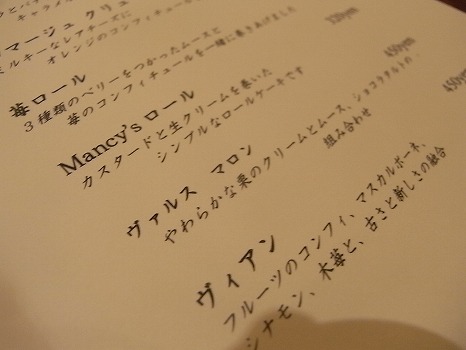 マージュ クリュ
ミルキーなレアチーズに
オレンジのコンフィチュー
320yen
苺ロール
3種類のベリーをつかったムースと
苺のコンフィチュールを一緒に巻きあげました
450yen
Mancy'sロール
カスタードと生クリームを巻いた
シンプルなロールケーキです
450yen
ヴァルス マロン
やわらかな栗のクリームとムース、ショコラタルトの
組み合わせ
ヴィアン
フルーツのコンフィ、マスカルポーネ、
シナモン、木苺と、古さと新しさの融合